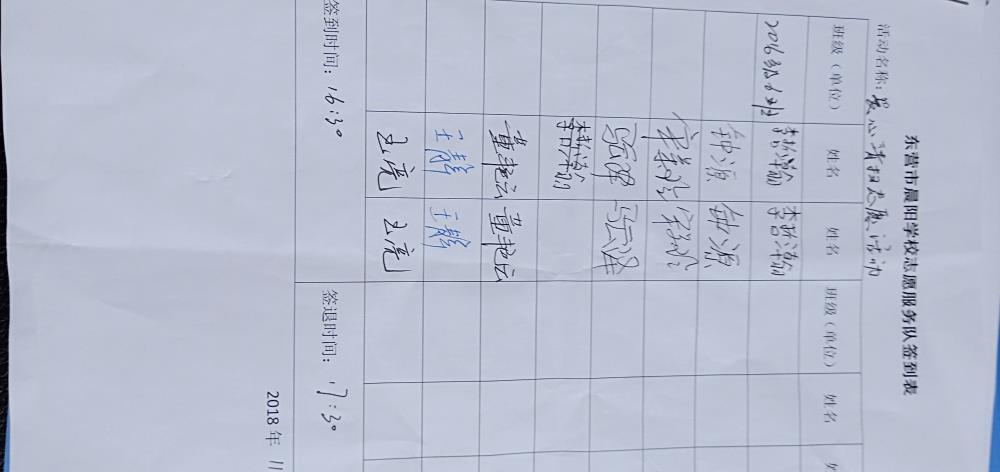 东营市晨阳学校志愿服务队签到表
活动名称：爱心清扫志愿活动
班级（单位） 姓名 姓名 班级（单位） 姓名
2016级6班 李哲瀚 李哲瀚
钟源 钟源
董艳云 董艳云
王静 王静
王亮 王亮
签到时间：16:30 签退时间：17:30
2018年 11